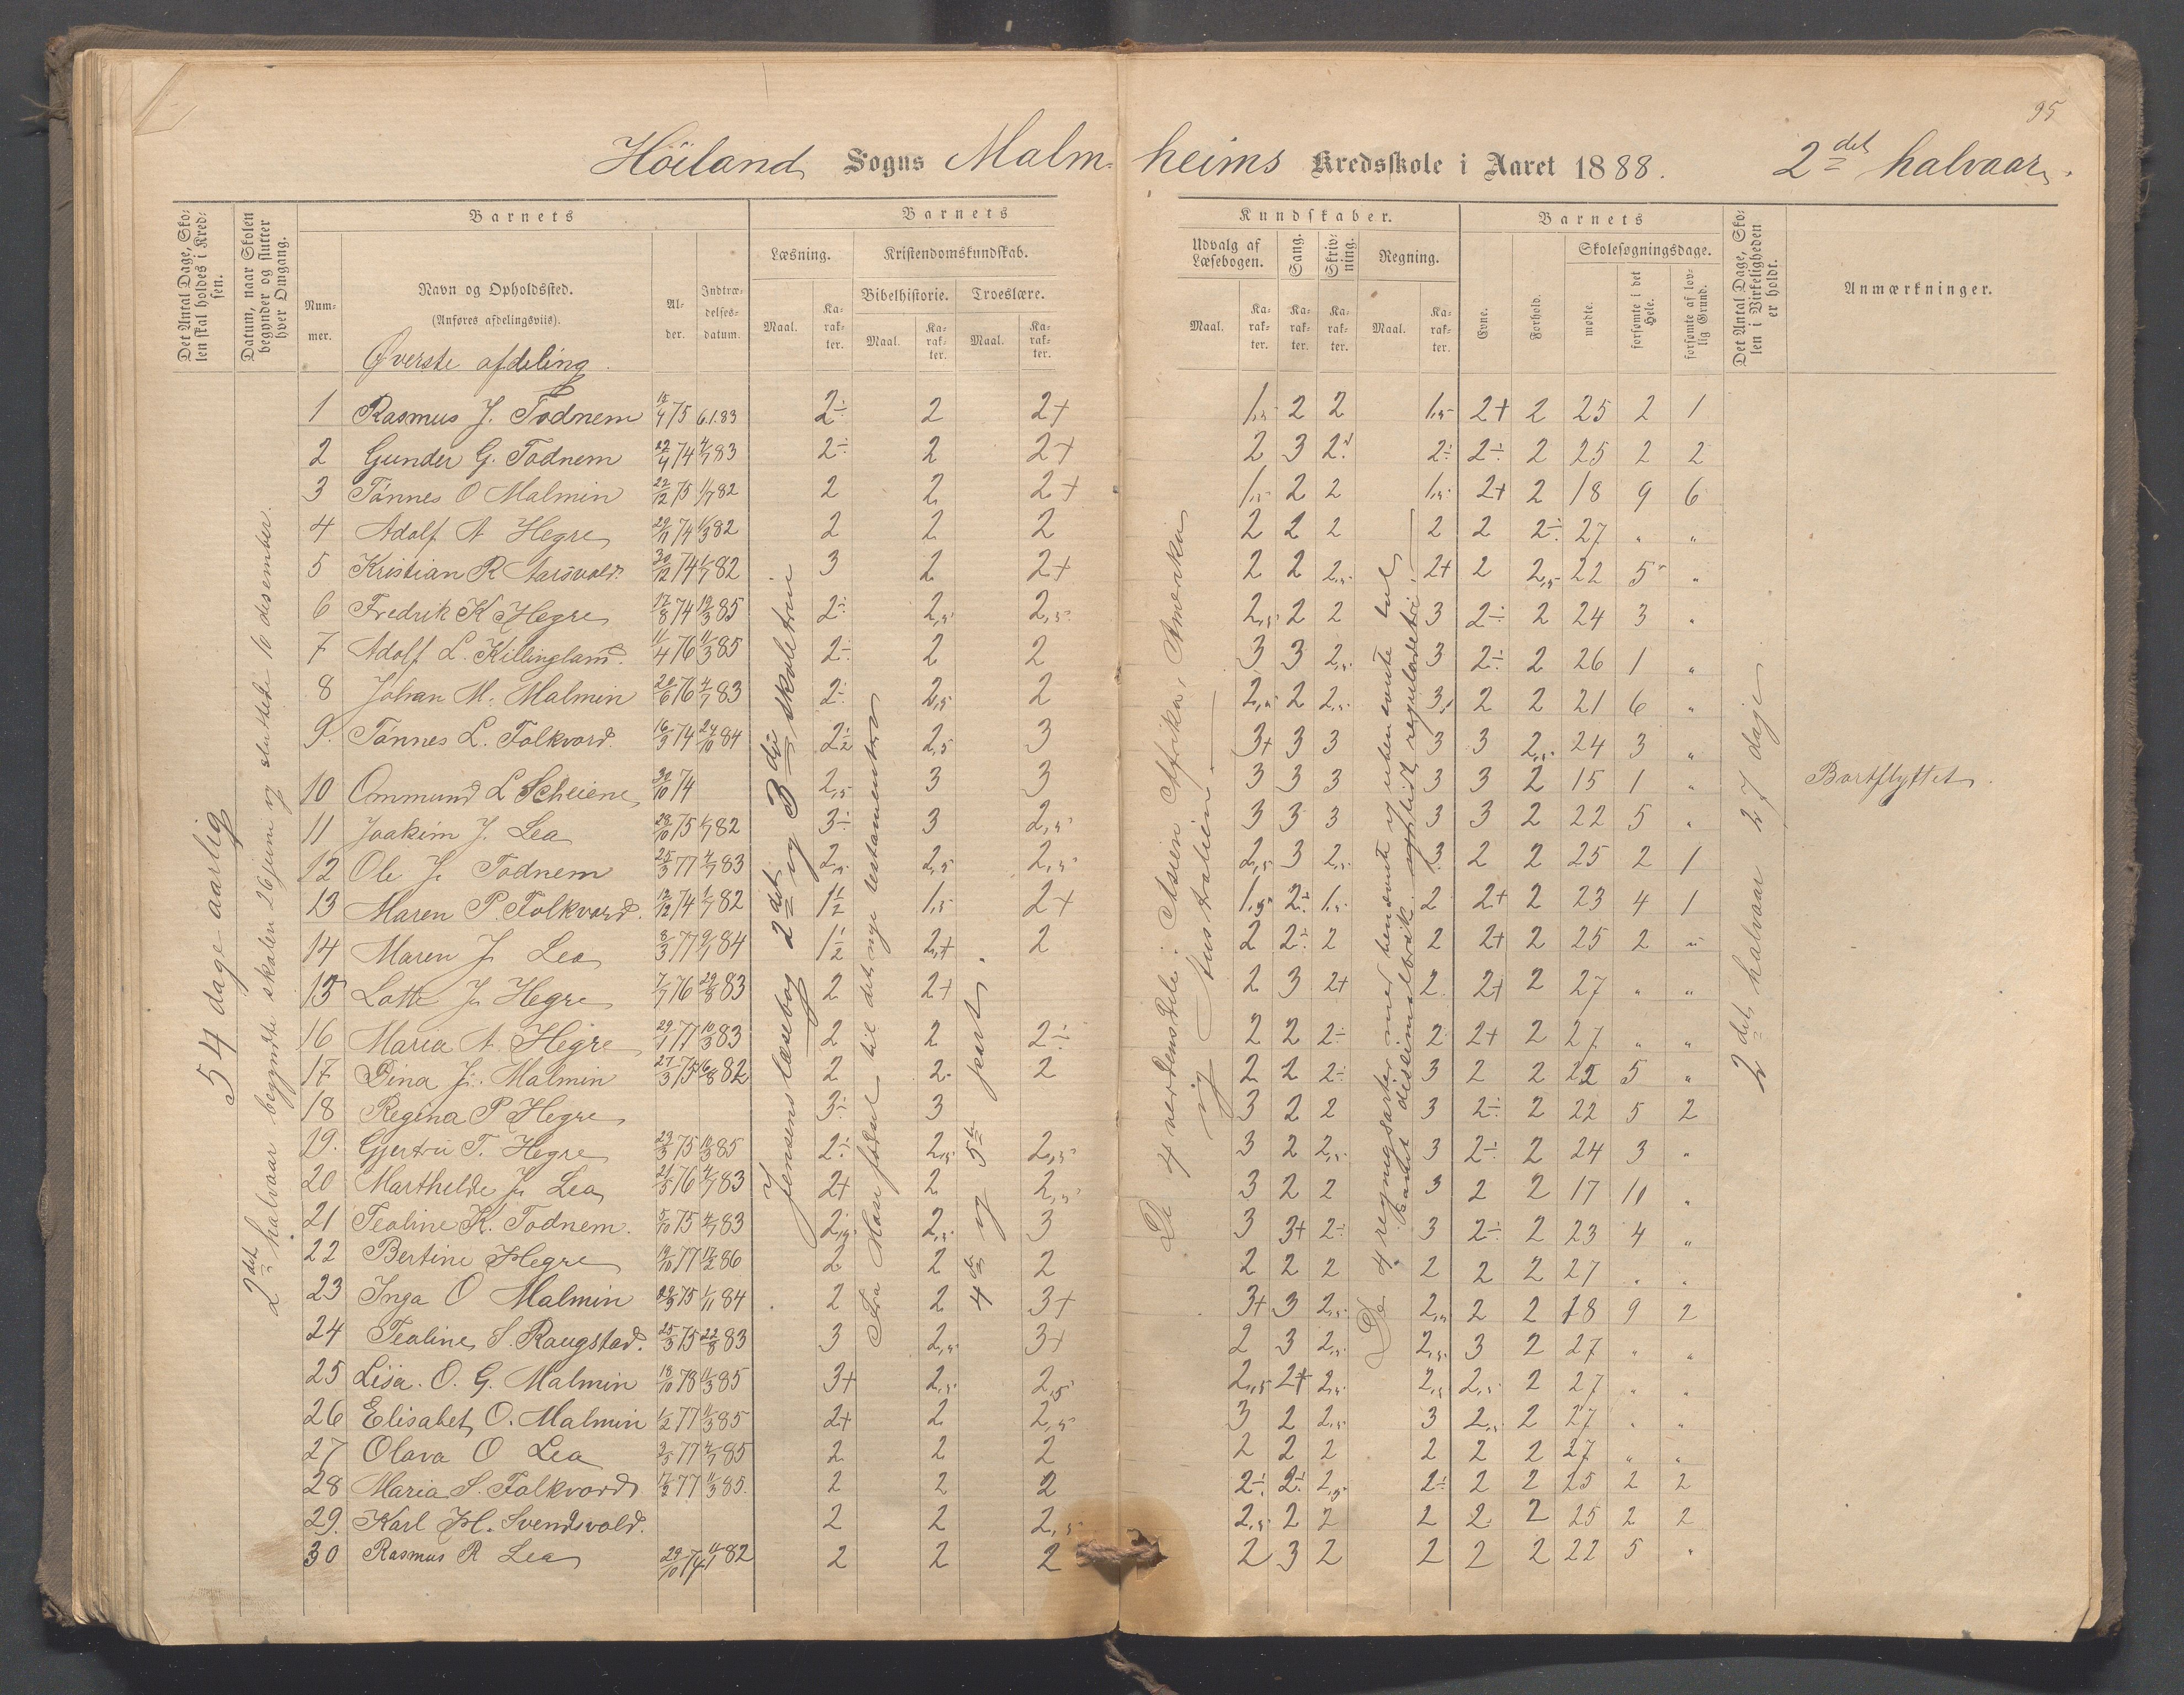 95
Höiland Sogns Malmheims Kredsskole i Aaret 1888. 2det halvaar.
Det Antal Dage, Skolen skal holdes i Kredsen.
Datum, naar Skolen begynder og slutter hver Omgang.
Barnets
Nummer.
Navn og Opholdssted.
(Anføres afdelingsviis).
Alder.
Indtrædelsesdatum.
Barnets Kundskaber.
Læsning.
Maal.
Karakter.
Kristendomskundskab.
Bibelhistorie.
Maal.
Karakter.
Troeslære.
Maal.
Karakter.
Udvalg af Læsebogen.
Maal.
Karakter.
Sang.
Karakter.
Skrivning.
Karakter.
Regning.
Maal.
Karakter.
Barnets
Evne.
Forhold.
Skolesøgningsdage.
mødte.
forsømte i det Hele.
forsømte af lovlig Grund.
Det Antal Dage, Skolen i Virkeligheden er holdt.
Anmærkninger.
Øverste afdeling.
54 dage aarlig
2det halvaar begyndte skolen 26 juni og sluttede 10 desember.
Jensens læsebog 2det og 3die skoletrin
Fra til det nye testamentet
4de og 5te part.
De 4 verdensdele: Asien Afrika, Amerika og Australien.
De 4 regningsarter med benævnte og ubenævnte tal
2det halvaar 27 dage
1 Rasmus J. Todnem 15/4 75 6.1.83 2÷ 2 2+ 1,5 2 2 1,5 2+ 2 25 2 1
2 Gunder G. Todnem 22/4 74 4/7 83 2÷ 2 2+ 2 3 2÷ 2÷ 2÷ 2 25 2 2
3 Tönnes O Malmin 22/12 75 1/7 82 2 2 2+ 1,5 2 2 1,5 2+ 2 18 9 6
4 Adolf A Hegre 29/11 74 1/3 82 2 2 2 2 2 2 2 2 2÷ 27 " "
5 Kristian R Aarsvold. 30/12 74 1/7 82 3 2 2+ 2 2 2,5 2+ 2 2,5 22 5 "
6 Fredrik K Hegre 17/8 74 19/3 85 2÷ 2,5 2,5 2,5 2 2 3 2÷ 2 24 3 "
7 Adolf L. Killingland. 11/4 76 11/3 85 2÷ 2 2 3 3 2,5 3 2÷ 2 26 1 "
8 Johan M. Malmin 20/6 76 4/7 83 2÷ 2,5 2 2,5 2 2,5 3 2 2 21 6 "
9. Tönnes L. Folkvord. 16/3 74 24/10 84 2½ 2,5 3 3+ 3 3 3 3 2,5 24 3 "
10 Ommund L Scheiene 30/10 74 2,5 3 3 3 3 3 3 3 2 15 1 " Bortflyttet.
11 Joakim J. Lea 28/10 75 1/7 82 3÷ 3 2,5 3 3 3 3 3 2 22 5 "
12 Ole J. Todnem 25/3 77 4/7 83 2,5 2,5 2,5 2,5 3 2,5 3 2 2 25 2 1
13 Maren P. Folkvord. 12/12 74 1/7 82 1½ 1,5 2+ 1,5 2÷ 1,5 2 2+ 2 23 4 1
14 Maren J. Lea 8/3 77 9/7 84 1½ 2+ 2 2 2÷ 2 2 2+ 2 25 2 "
15 Lotte J. Hegre 7/7 76 29/8 83 2 2+ 2 3 2+ 2 2+ 2 27 " "
16 Maria A Hegre 29/1 77 10/3 83 2 2 2÷ 2 2 2÷ 2 2+ 2 27 " "
17 Dina J. Malmin 27/3 75 16/8 82 2 2 2 2 2 2÷ 3 2 2 22 5 "
18 Regina P Hegre 3÷ 3 3 2 2 3 2÷ 2 22 5 2
19. Gjertru T. Hegre 23/3 75 19/3 85 2÷ 2,5 2,5 3 2 2,5 3 2÷ 2 24 3 "
20 Marthilde J. Lea 21/5 76 4/7 83 2+ 2 2,5 3 2 2 3 2 2 17 11 "
21 Tealine K. Todnem. 5/10 75 4/7 83 2,5 2,5 3 3 3+ 2÷ 3 2÷ 2 23 4 "
22 Bertine Hegre 19/10 77 17/2 86 2 2 2 2 2 2 2 2 2 27 " "
23 Inga O Malmin 29/3 75 1/11 84 2 2 3+ 3+ 3 2,5 2,5 2 2 18 9 2
24 Tealine S. Raugstad. 25/3 75 22/8 83 3 2,5 3+ 2 3 2,5 2,5 3 2 27 " "
25 Lisa. O. G. Malmin 18/10 78 11/3 85 3+ 2,5 2,5 2,5 2+ 2,5 2,5 2,5 2 27 " "
26 Elisabet O. Malmin 1/2 77 11/3 85 2+ 2 2,5 3 2 2,5 3 2,5 2 27 " "
27 Olava O Lea 3/5 77 4/7 85 2 2 2 2 2 2 2 2 2 27 " "
28 Maria S. Folkvord 17/2 77 11/3 85. 2 2 2 2÷ 2÷ 2,5 2÷ 2 2 25 2 2
29. Karl H. Svendsvold. 2 2 2,5 2,5 2 2 2 2 2 25 2 2
30 Rasmus R Lea 29/10 74 11/1 82 2 2 2 2 3 2 2 2 2 22 5 "